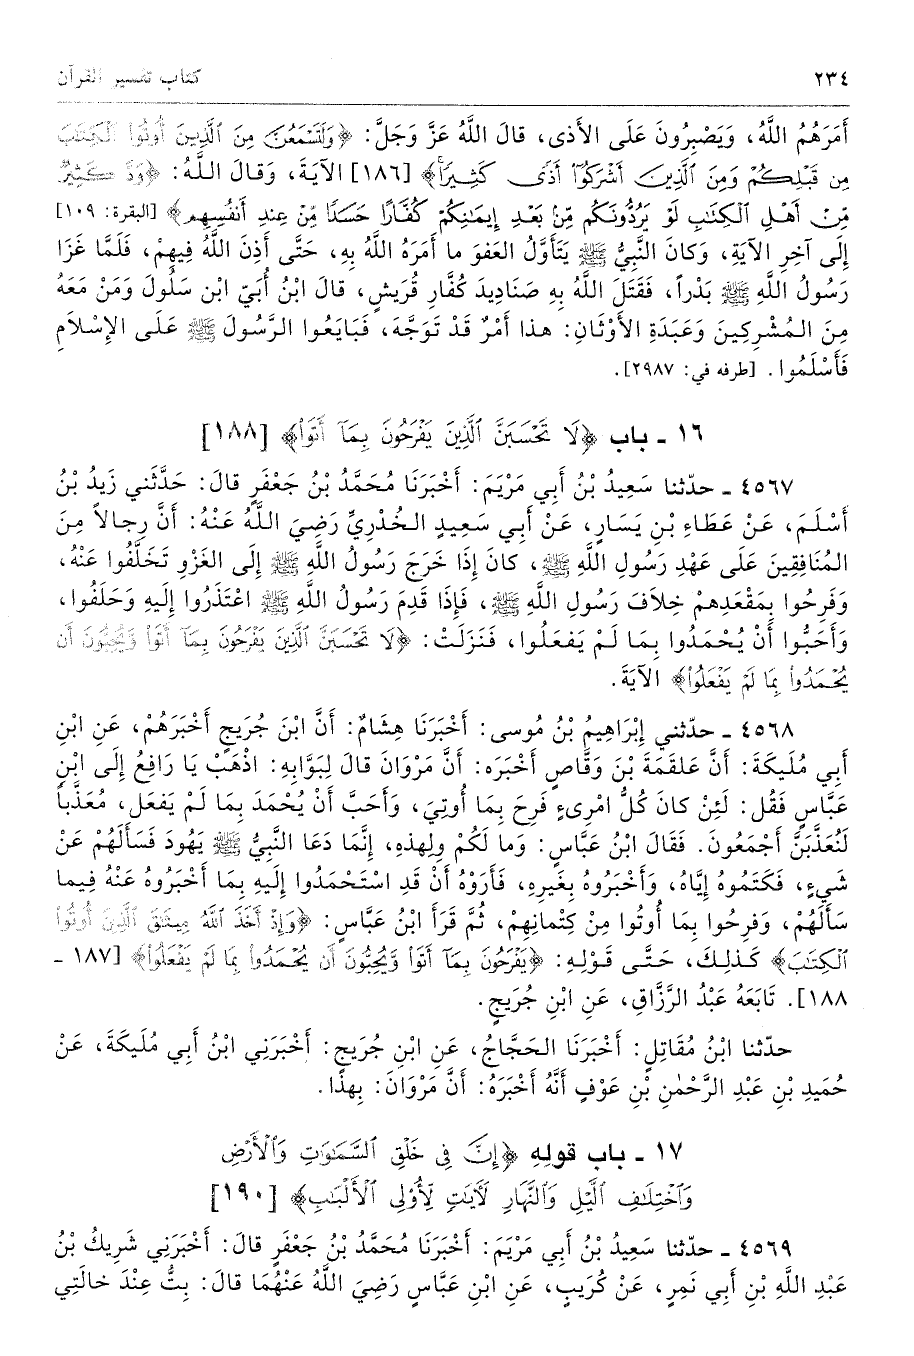 ٢٣٤ كتاب تفسير القرآن
أَمَرَهُمُ اللَّهُ، وَيَصْبِرُونَ عَلَى الأَذى، قالَ اللَّهُ عَزَّ وَجَلَّ: ﴿وَلَتَسْمَعُنَّ مِنَ الَّذِينَ أُوتُوا الْكِتَابَ
مِن قَبْلِكُمْ وَمِنَ الَّذِينَ أَشْرَكُوا أَذًى كَثِيرًا﴾ [١٨٦] الآيَةَ، وَقالَ اللَّهُ: ﴿وَدَّ كَثِيرٌ
مِّنْ أَهْلِ الْكِتَابِ لَوْ يَرُدُّونَكُم مِّنْ بَعْدِ إِيمَانِكُمْ كُفَّارًا حَسَدًا مِّنْ عِندِ أَنفُسِهِم﴾ [البقرة: ١٠٩]
إِلَى آخِرِ الآيَةِ، وَكانَ النَّبِيُّ ﷺ يَتَأَوَّلُ العَفوَ ما أَمَرَهُ اللَّهُ بِهِ، حَتَّى أَذِنَ اللَّهُ فِيهِمْ، فَلَمَّا غَزَا
رَسُولُ اللَّهِ ﷺ بَدْراً، فَقَتَلَ اللَّهُ بِهِ صَنَادِيدَ كُفَّارِ قُرَيشٍ، قالَ ابْنُ أُبَيّ ابْن سَلُولَ وَمَنْ مَعَهُ
مِنَ المُشْرِكِينَ وَعَبَدَةِ الأَوْثَانِ: هذا أَمْرٌ قَدْ تَوَجَّهَ، فَبَايَعُوا الرَّسُولَ ﷺ عَلَى الإِسْلَامِ
فَأَسْلَمُوا. [طرفه في: ٢٩٨٧].
١٦ ـ باب ﴿لَا تَحْسَبَنَّ الَّذِينَ يَفْرَحُونَ بِمَا أَتَوْا﴾ [١٨٨]
٤٥٦٧ ـ حدّثنا سَعِيدُ بْنُ أَبِي مَرْيَمَ: أَخْبَرَنَا مُحَمَّدُ بْنُ جَعْفَرٍ قالَ: حَدَّثَني زَيدُ بْنُ
أَسْلَمَ، عَنْ عَطَاءِ بْنِ يَسَارٍ، عَنْ أَبِي سَعِيدٍ الخُدْرِيِّ رَضِيَ اللَّهُ عَنْهُ: أَنَّ رِجالاً مِنَ
المُنَافِقِينَ عَلَى عَهْدِ رَسُولِ اللَّهِ ﷺ، كانَ إِذَا خَرَجَ رَسُولُ اللَّهِ ﷺ إِلَى الغَزْوِ تَخَلَّفُوا عَنْهُ،
وَفَرِحُوا بِمَقْعَدِهِمْ خِلَافَ رَسُولِ اللَّهِ ﷺ، فَإِذَا قَدِمَ رَسُولُ اللَّهِ ﷺ اعْتَذَرُوا إِلَيهِ وَحَلَفُوا،
وَأَحَبُّوا أَنْ يُحْمَدُوا بِمَا لَمْ يَفعَلُوا، فَنَزَلَتْ: ﴿لَا تَحْسَبَنَّ الَّذِينَ يَفْرَحُونَ بِمَا أَتَوْا وَّيُحِبُّونَ أَن
يُحْمَدُوا بِمَا لَمْ يَفْعَلُوا﴾ الآيَةَ.
٤٥٦٨ ـ حدّثني إِبْرَاهِيمُ بْنُ مُوسى: أَخْبَرَنَا هِشَامٌ: أَنَّ ابْنَ جُرَيجٍ أَخْبَرَهُمْ، عَنِ ابْنِ
أَبِي مُلَيكَةَ: أَنَّ عَلقَمَةَ بْنَ وَقَّاصٍ أَخْبَرَه: أَنَّ مَرْوَانَ قالَ لِبَوَّابِهِ: اذْهَبْ يَا رَافِعُ إِلَى ابْنِ
عَبَّاسٍ فَقُل: لَئِنْ كانَ كُلُّ امْرِىءٍ فَرِحَ بِمَا أُوتِيَ، وَأَحَبَّ أَنْ يُحْمَدَ بِمَا لَمْ يَفعَل، مُعَذَّباً
لَنُعَذَّبَنَّ أَجْمَعُونَ. فَقَالَ ابْنُ عَبَّاسٍ: وَما لَكُمْ وَلِهذِهِ، إِنَّمَا دَعَا النَّبِيُّ ﷺ يَهُودَ فَسَأَلَهُمْ عَنْ
شَيءٍ، فَكَتَمُوهُ إِيَّاهُ، وَأَخْبَرُوهُ بِغَيرِهِ، فَأَرَوْهُ أَنْ قَدِ اسْتَحْمَدُوا إِلَيهِ بِمَا أَخْبَرُوهُ عَنْهُ فِيما
سَأَلَهُمْ، وَفَرِحُوا بِمَا أُوتُوا مِنْ كِتْمانِهِمْ، ثُمَّ قَرَأَ ابْنُ عَبَّاسٍ: ﴿وَإِذْ أَخَذَ اللَّهُ مِيثَاقَ الَّذِينَ أُوتُوا
الْكِتَابَ﴾ كَذلِكَ، حَتَّى قَوْلِهِ: ﴿يَفْرَحُونَ بِمَا أَتَوْا وَّيُحِبُّونَ أَن يُحْمَدُوا بِمَا لَمْ يَفْعَلُوا﴾ [١٨٧ ـ
١٨٨]. تَابَعَهُ عَبْدُ الرَّزَّاقِ، عَنِ ابْنِ جُرَيجٍ.
حدّثنا ابْنُ مُقَاتِلٍ: أَخْبَرَنَا الحَجَّاجُ، عَنِ ابْنِ جُرَيجٍ: أَخْبَرَنِي ابْنُ أَبِي مُلَيكَةَ، عَنْ
حُمَيدِ بْنِ عَبْدِ الرَّحْمٰنِ بْنِ عَوْفٍ أَنَّهُ أَخْبَرَهُ: أَنَّ مَرْوَانَ: بِهذا.
١٧ ـ باب قولِهِ ﴿إِنَّ فِي خَلْقِ السَّمَاوَاتِ وَالْأَرْضِ
وَاخْتِلَافِ اللَّيْلِ وَالنَّهَارِ لَآيَاتٍ لِّأُوْلِي الْأَلْبَابِ﴾ [١٩٠]
٤٥٦٩ ـ حدّثنا سَعِيدُ بْنُ أَبِي مَرْيَمَ: أَخْبَرَنَا مُحَمَّدُ بْنُ جَعْفَرٍ قالَ: أَخْبَرَنِي شَرِيكُ بْنُ
عَبْدِ اللَّهِ بْنِ أَبِي نَمِرٍ، عَنْ كُرَيبٍ، عَنِ ابْنِ عَبَّاسٍ رَضِيَ اللَّهُ عَنْهُمَا قالَ: بِتُّ عِنْدَ خالَتِي